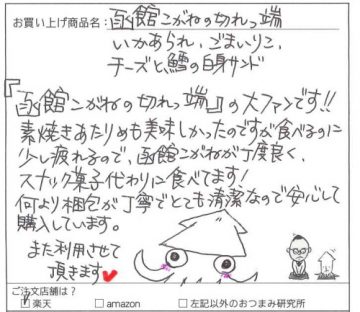 お買い上げ商品名：函館こがねの切れっ端
いかあられ、ごまいりこ、
チーズと鱈の白身サンド
『函館こがねの切れっ端』の大ファンです!!
素焼きあたりめも美味しかったのですが食べるのに
少し疲れるので、函館こがねが丁度良く、
スナック菓子代わりに食べてます!
何より梱包が丁寧でとても清潔なので安心して
購入しています。
また利用させて
頂きます
ご注文店舗は？
☑楽天 □amazon □左記以外のおつまみ研究所